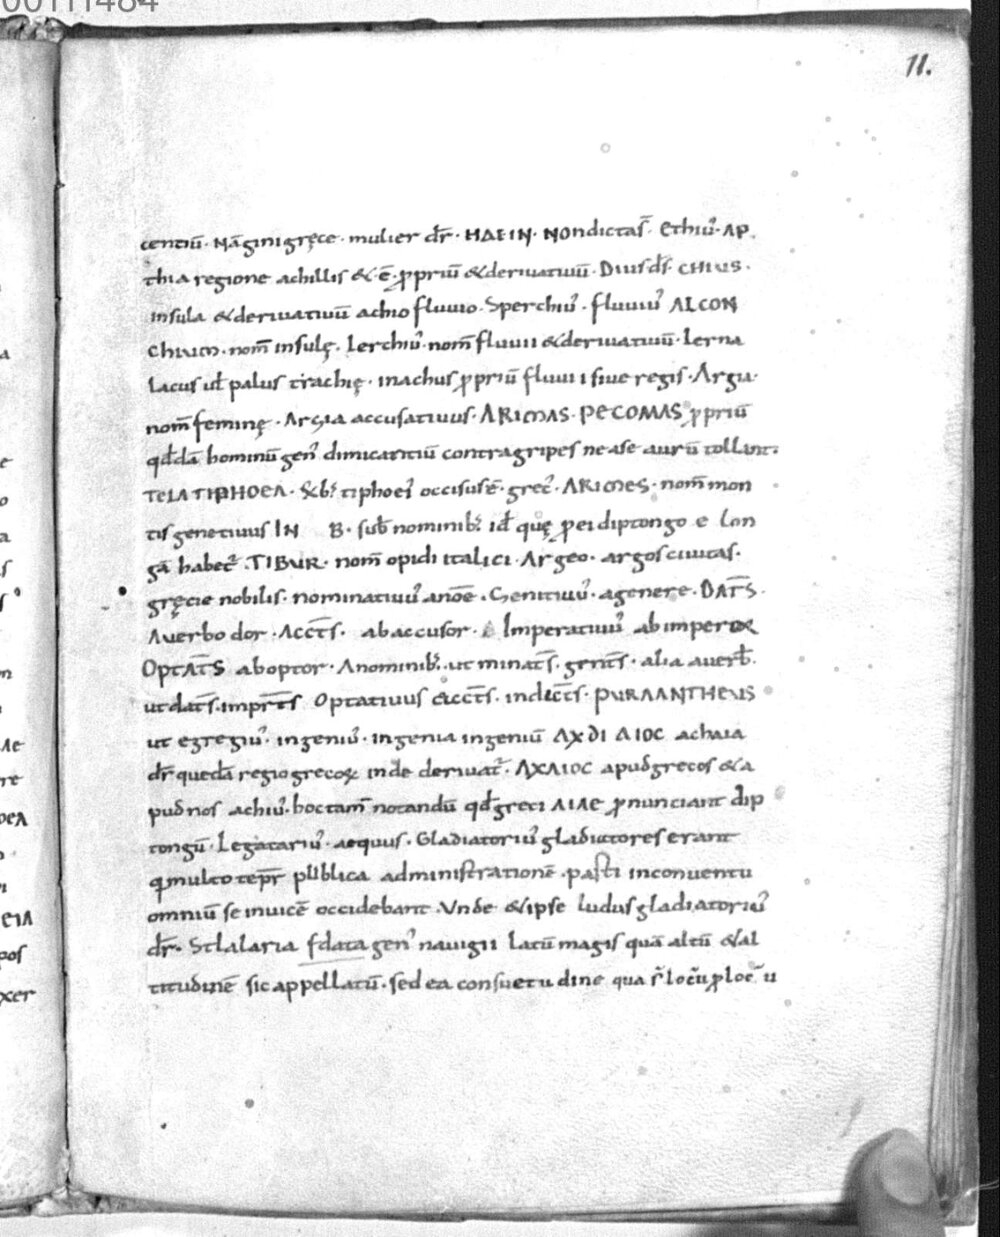 00111484
11.
centiū · Nā gini gręce · mulier dr̄ · HΔEIN · Non dictas̄ · Ethiu᾿ · AP.
thia regione achillis & ē · ꝓpriū & deriuatiuū · Diuisds̄ · CHIUS ·
insula & deriuatiuū achio fluuio · Sperchiu᾿ · fluuiu᾿ ALCON
Chium · nom̄ insulę · Lerchiu᾿ · nom̄ fluuii & deriuatiuū · Lerna
Lacus ul̄ palus trachię · inachus ꝓpriū fluuii siue regis · Argia ·
nom̄ feminę · Argia accusatiuus · ARIMAS · PECOMAS ꝓpriū
qd̄dā hominū gen᾿ dimicantiū contra gripes ne ase aurū tollant ·
TELA TIPHOEA · &b᾿ tiphoei᾿ occisus ē · grec᾿ · ARIMES · nom̄ mon
tis genetiuus IN B · sub̄ nominib᾿ id̄ quę ꝑ ei diptongo e lon
gā habet᾿ · TIBUR · nom̄ opidi italici · Argeo · argos ciuitas ·
gręcie nobilis · nominatiuu᾿ anōe · Genitiuu᾿ · a genere · DAT̄S ·
Auerbo dor · Acct̄s · ab accusor · Imperatiuu᾿ ab imperor
OPTAT̄S ab optor · Anominib᾿ · ut minat̄s · gent̄s · alia auerb̄ ·
ut dat̄s · impr̄t̄s Optatiuus & acct̄s · indict̄s · PURAANTHEUS
ut egregiu᾿ · ingeniu᾿ · ingenia ingeniū AXDI AIOC achaia
dr̄ quedā regio grecoꝝ inde deriuat᾿ · AXAIOC apud grecos & a
pud nos achiu᾿ · hoc tam̄ notandū qd̄ greci AIAE ꝓnunciant dip
tongū · Legatariu᾿ · aequus · Gladiatoriu᾿ gladiatores erant
q̄ multo tepr̄ publica administrationē · pasti in conuentu
omniū se inuicē occidebant · Vnde & ipse ludus gladiatoriu᾿
dr̄ · Stlalaria f data gen᾿ nauigii latū magis quā altū & al
titudinē sic appellatū · sed ea consuetudine qua r̄ locū ꝓ loc̄ u